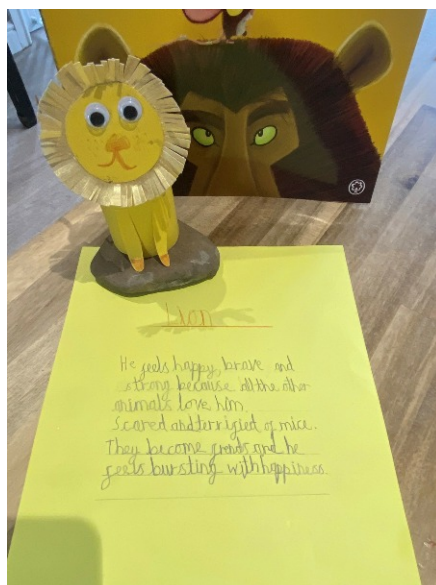 Lion
He feels happy, brave and
strong because all the other
animals love him.
Scared and terrified of mice.
They become friends and he
feels bursting with happiness